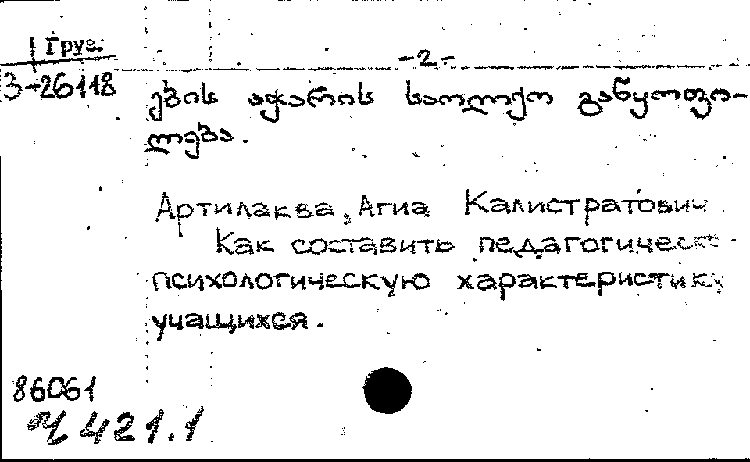 Груз.
-2-
3-26118
ების აჭარის საოლქო განყოფი-
ლება.
Артилаква, Агиа Калистратович
Как составить педагогическо-
психологическую характеристику
учащихся.
86061
Ч 421.1